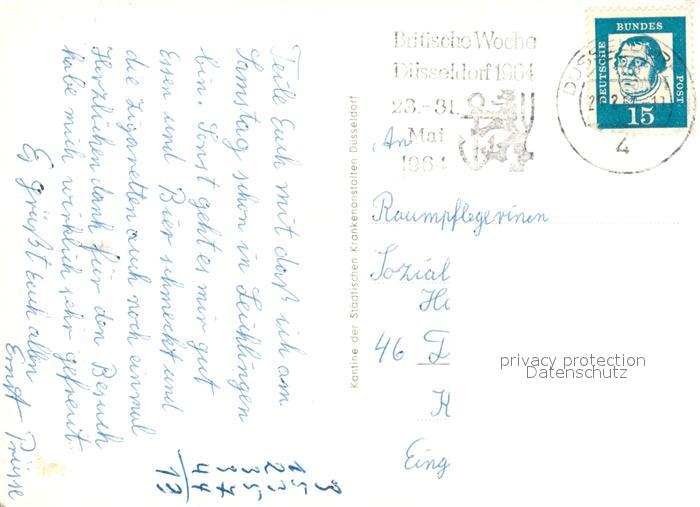 Teile Euch mit daß ich am
Samstag schon in Leichlingen
bin. Sonst geht es mir gut
Essn und Bier schmeckt und
die Zigaretten auch noch einmal
Herzlichen dank für den Besuch
habe mich wirklich sehr gefreut.
Es grüßt Euch allen
Ernst
Kantine der Städtischen Krankenanstalten Düsseldorf
Britische Woche
Düsseldorf 1964
23.-31.
Mai
1964
DEUTSCHE BUNDES POST
15
4
An
Raumpflegerinen
Sozial
46
Eing
privacy protection
Datenschutz